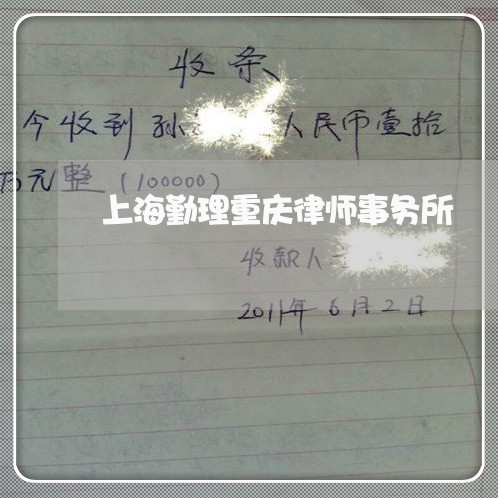 收条
今收到孙 人民币壹拾
万元整(100000)
上海勤理重庆律师事务所
收款人
2011年6月2日